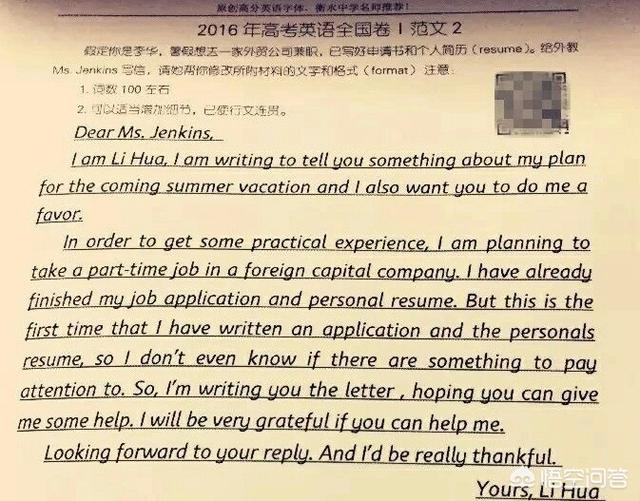 原创高分英语字体，衡水中学名师推荐！
2016年高考英语全国卷 I 范文2
假定你是李华，暑假想去一家外贸公司兼职，已写好申请书和个人简历（resume）。给外教
Ms. Jenkins 写信，请她帮你修改所附材料的文字和格式（format）注意：
1. 词数100左右
2. 可以适当增加细节，已使行文连贯。
Dear Ms. Jenkins,
I am Li Hua, I am writing to tell you something about my plan
for the coming summer vacation and I also want you to do me a
favor.
In order to get some practical experience, I am planning to
take a part-time job in a foreign capital company. I have already
finished my job application and personal resume. But this is the
first time that I have written an application and the personals
resume, so I don't even know if there are something to pay
attention to. So, I'm writing you the letter , hoping you can give
me some help. I will be very grateful if you can help me.
Looking forward to your reply. And I'd be really thankful.
Yours, Li Hua
悟空问答